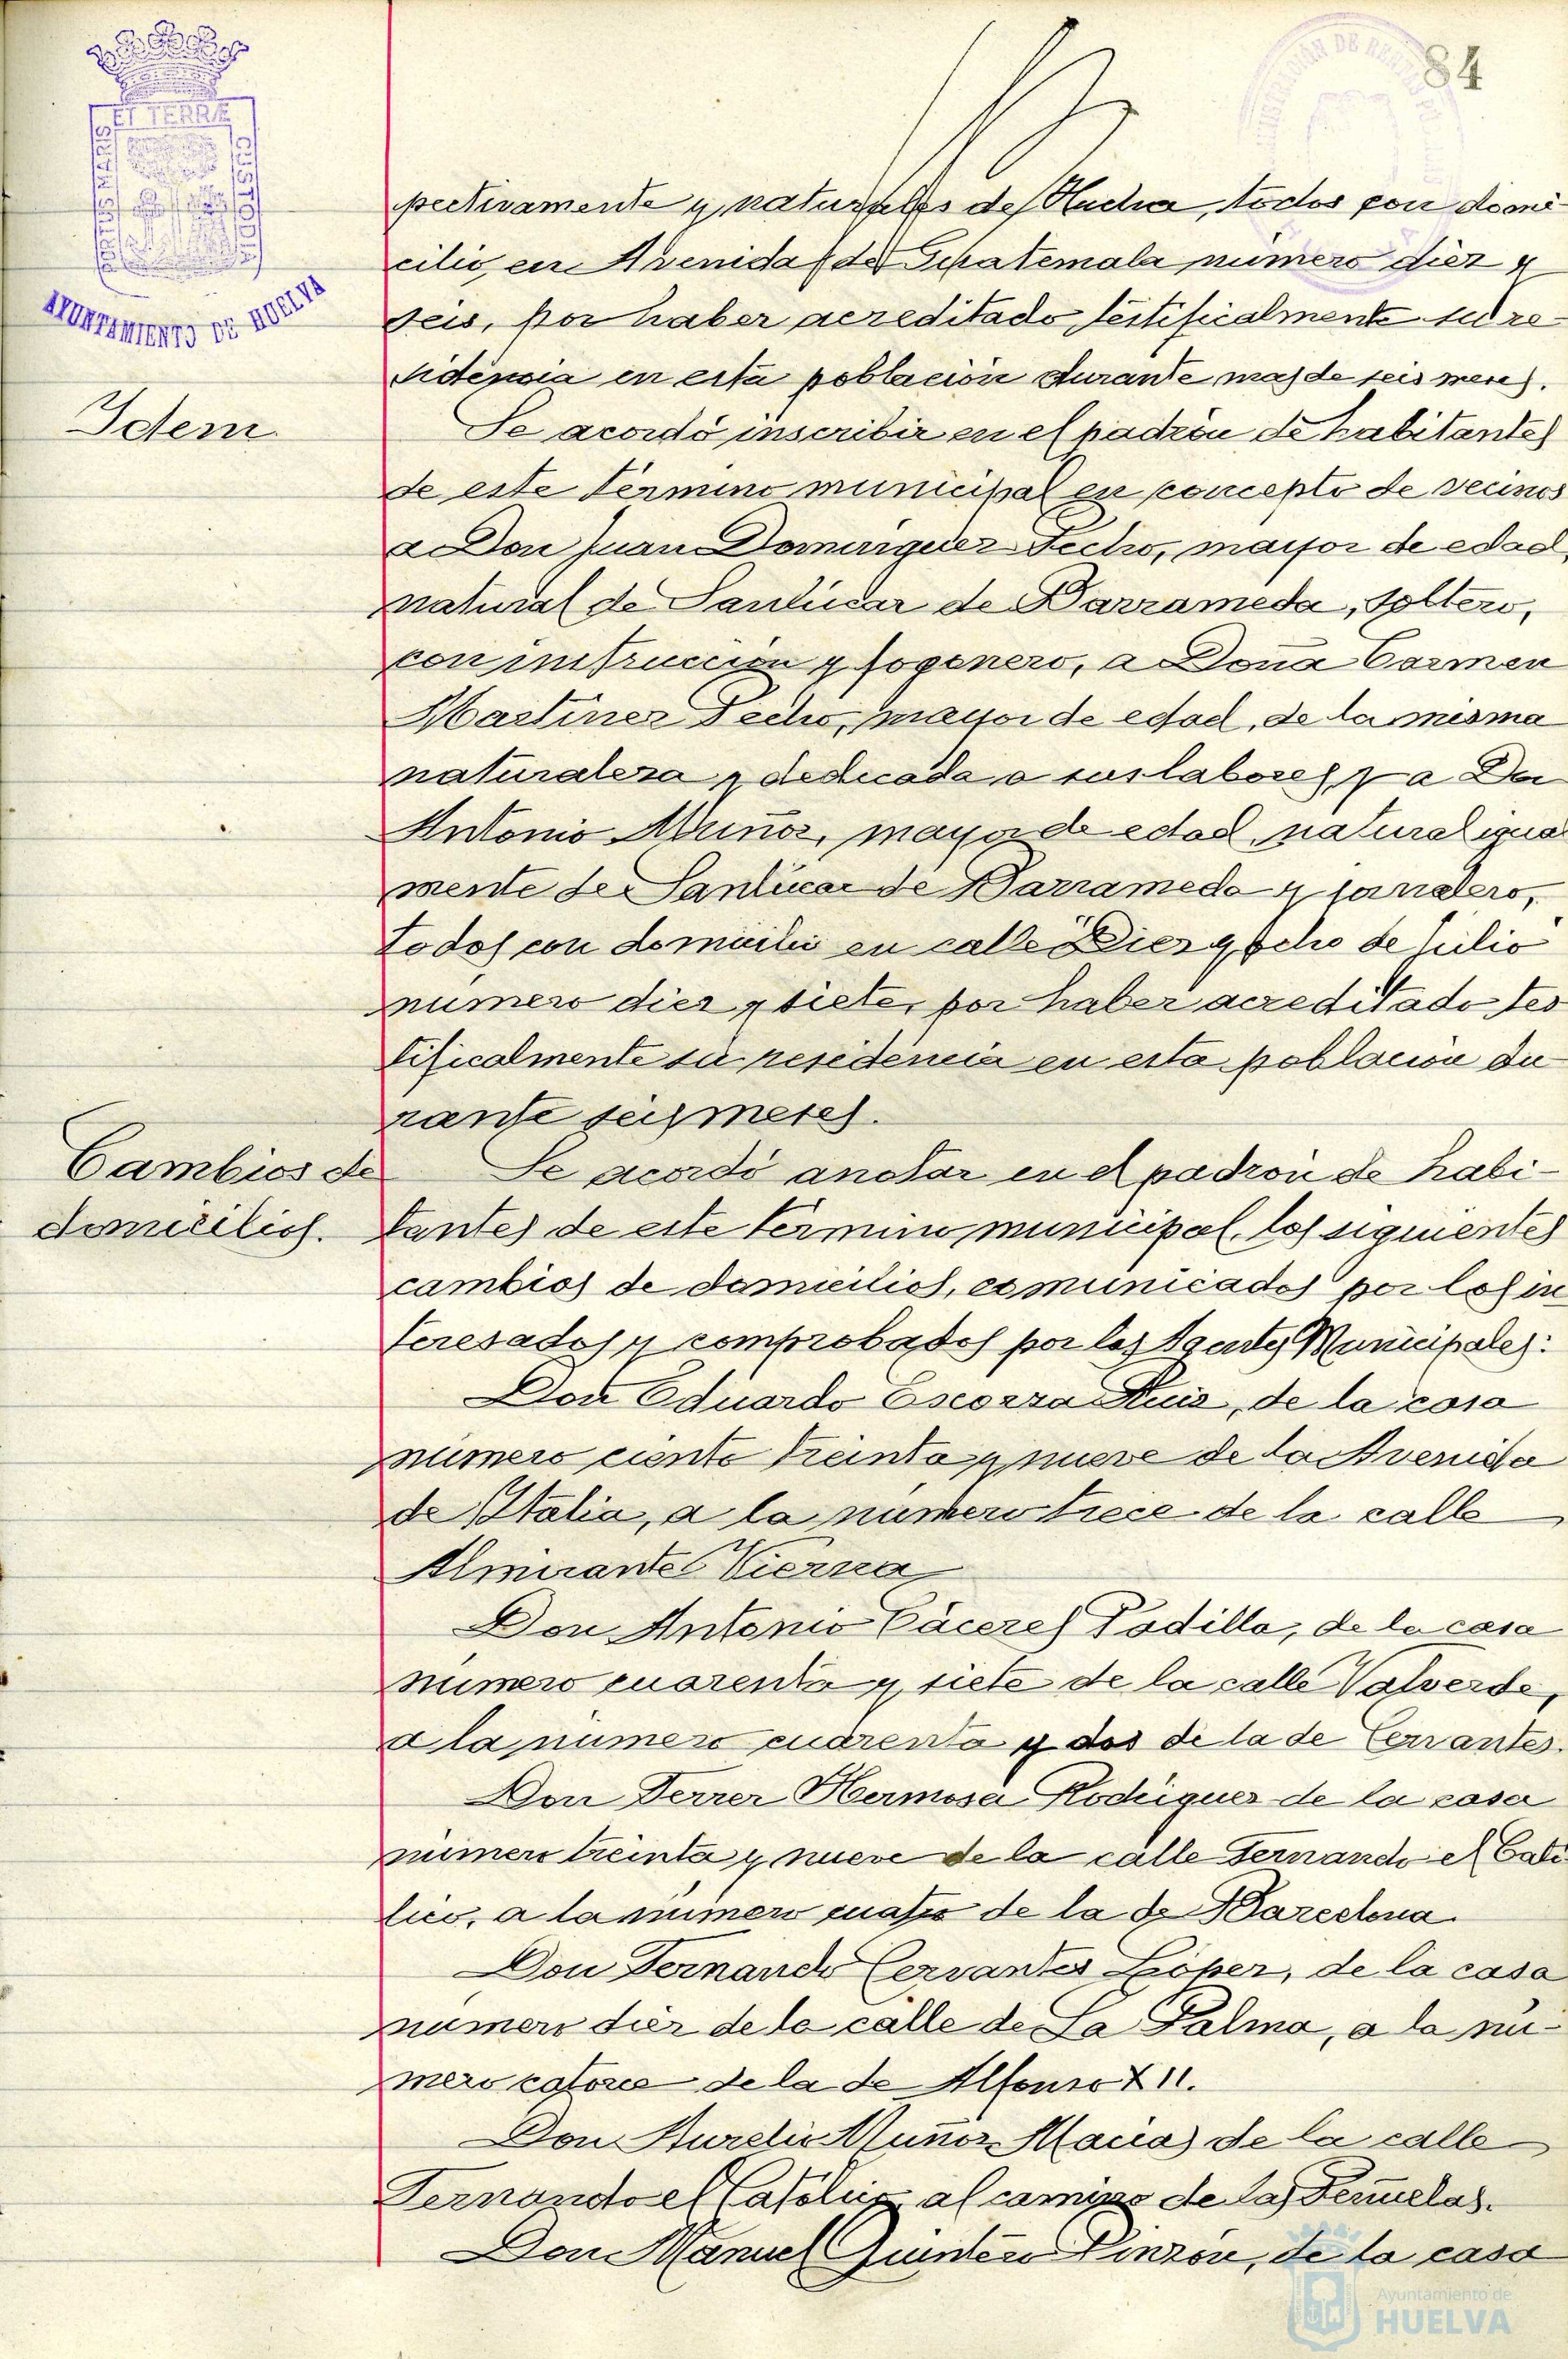 84
ET TERRÆ
AYUNTAMIENTO DE HUELVA
pectivamente y naturales de Huelva, todos con domi-
cilio en Avenida de Guatemala número diez y
seis, por haber acreditado testificalmente su re-
sidencia en esta población durante mas de seis meses.
Idem.
Se acordó inscribir en el padrón de habitantes
de este término municipal en concepto de vecinos
a Don Juan Dominguez Pecho, mayor de edad,
natural de Sanlúcar de Barrameda, soltero,
con instrucción y fogonero, a Doña Carmen
Martinez Pecho, mayor de edad, de la misma
naturaleza y dedicada a sus labores y a Don
Antonio Muñoz, mayor de edad, natural igual
mente de Sanlúcar de Barrameda y jornalero,
todos con domicilio en calle "Diez y ocho de Julio"
número diez y siete, por haber acreditado tes
tificalmente su residencia en esta población du
rante seis meses.
Cambios de
domicilios.
Se acordó anotar en el padrón de habi-
tantes de este término municipal, los siguientes
cambios de domicilios, comunicados por los in
teresados y comprobados por los Agentes Municipales:
Don Eduardo Escorza Ruiz, de la casa
número ciento treinta y nueve de la Avenida
de Italia, a la número trece de la calle
Almirante Vierna
Don Antonio Cáceres Padilla, de la casa
número cuarenta y siete de la calle Valverde,
a la número cuarenta y dos de la de Cervantes.
Don Ferrer Hermosa Rodriguez de la casa
número treinta y nueve de la calle Fernando el Cató
lico, a la número cuatro de la de Barcelona.
Don Fernando Cervantes López, de la casa
número diez de la calle de La Palma, a la nú-
mero catorce de la de Alfonso XII.
Don Aurelio Muñoz Macias de la calle
Fernando el Católico al camino de las Peñuelas.
Don Manuel Quintero Pinzón, de la casa
Ayuntamiento de
HUELVA